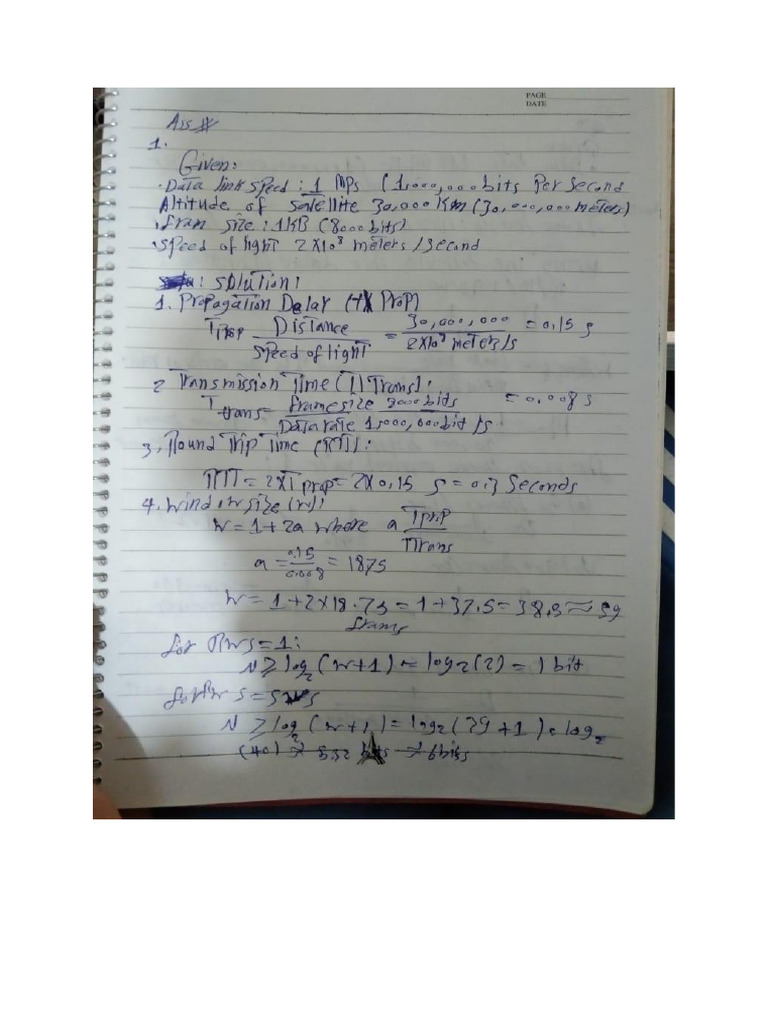 PAGE
DATE
Ass #
1.
Given:
· Data link speed : 1 Mps (1,000,000 bits Per Second
Altitude of satellite 30,000 Km (30,000,000 meters)
· fram size : 1KB (8000 bits)
· speed of light 2×10⁸ meters /second
: solution:
1. Propagation Delay (Prop)
Distance = 30,000,000 = 0.15 s
speed of light 2×10⁸ meters/s
2 Transmission Time (Trans):
Ttrans = framesize 8000 bits = 0.008 s
Data rate 1,000,000 bit/s
3. Round Trip Time (RTT):
RTT = 2×Tprop = 2×0.15 s = 0.3 Seconds
4. window size (w):
w = 1 + 2a where a Tprop
TTrans
a = 0.15 = 1875
0.008
w = 1 + 2×18.75 = 1 + 37.5 = 38.5 ≈ 39
frams
for Rws = 1:
N ≥ log₂ (w+1) = log₂ (2) = 1 bit
N ≥ log₂ (w+1) = log₂ (39 +1) = log₂
(40) 5.32 bits 6 bits